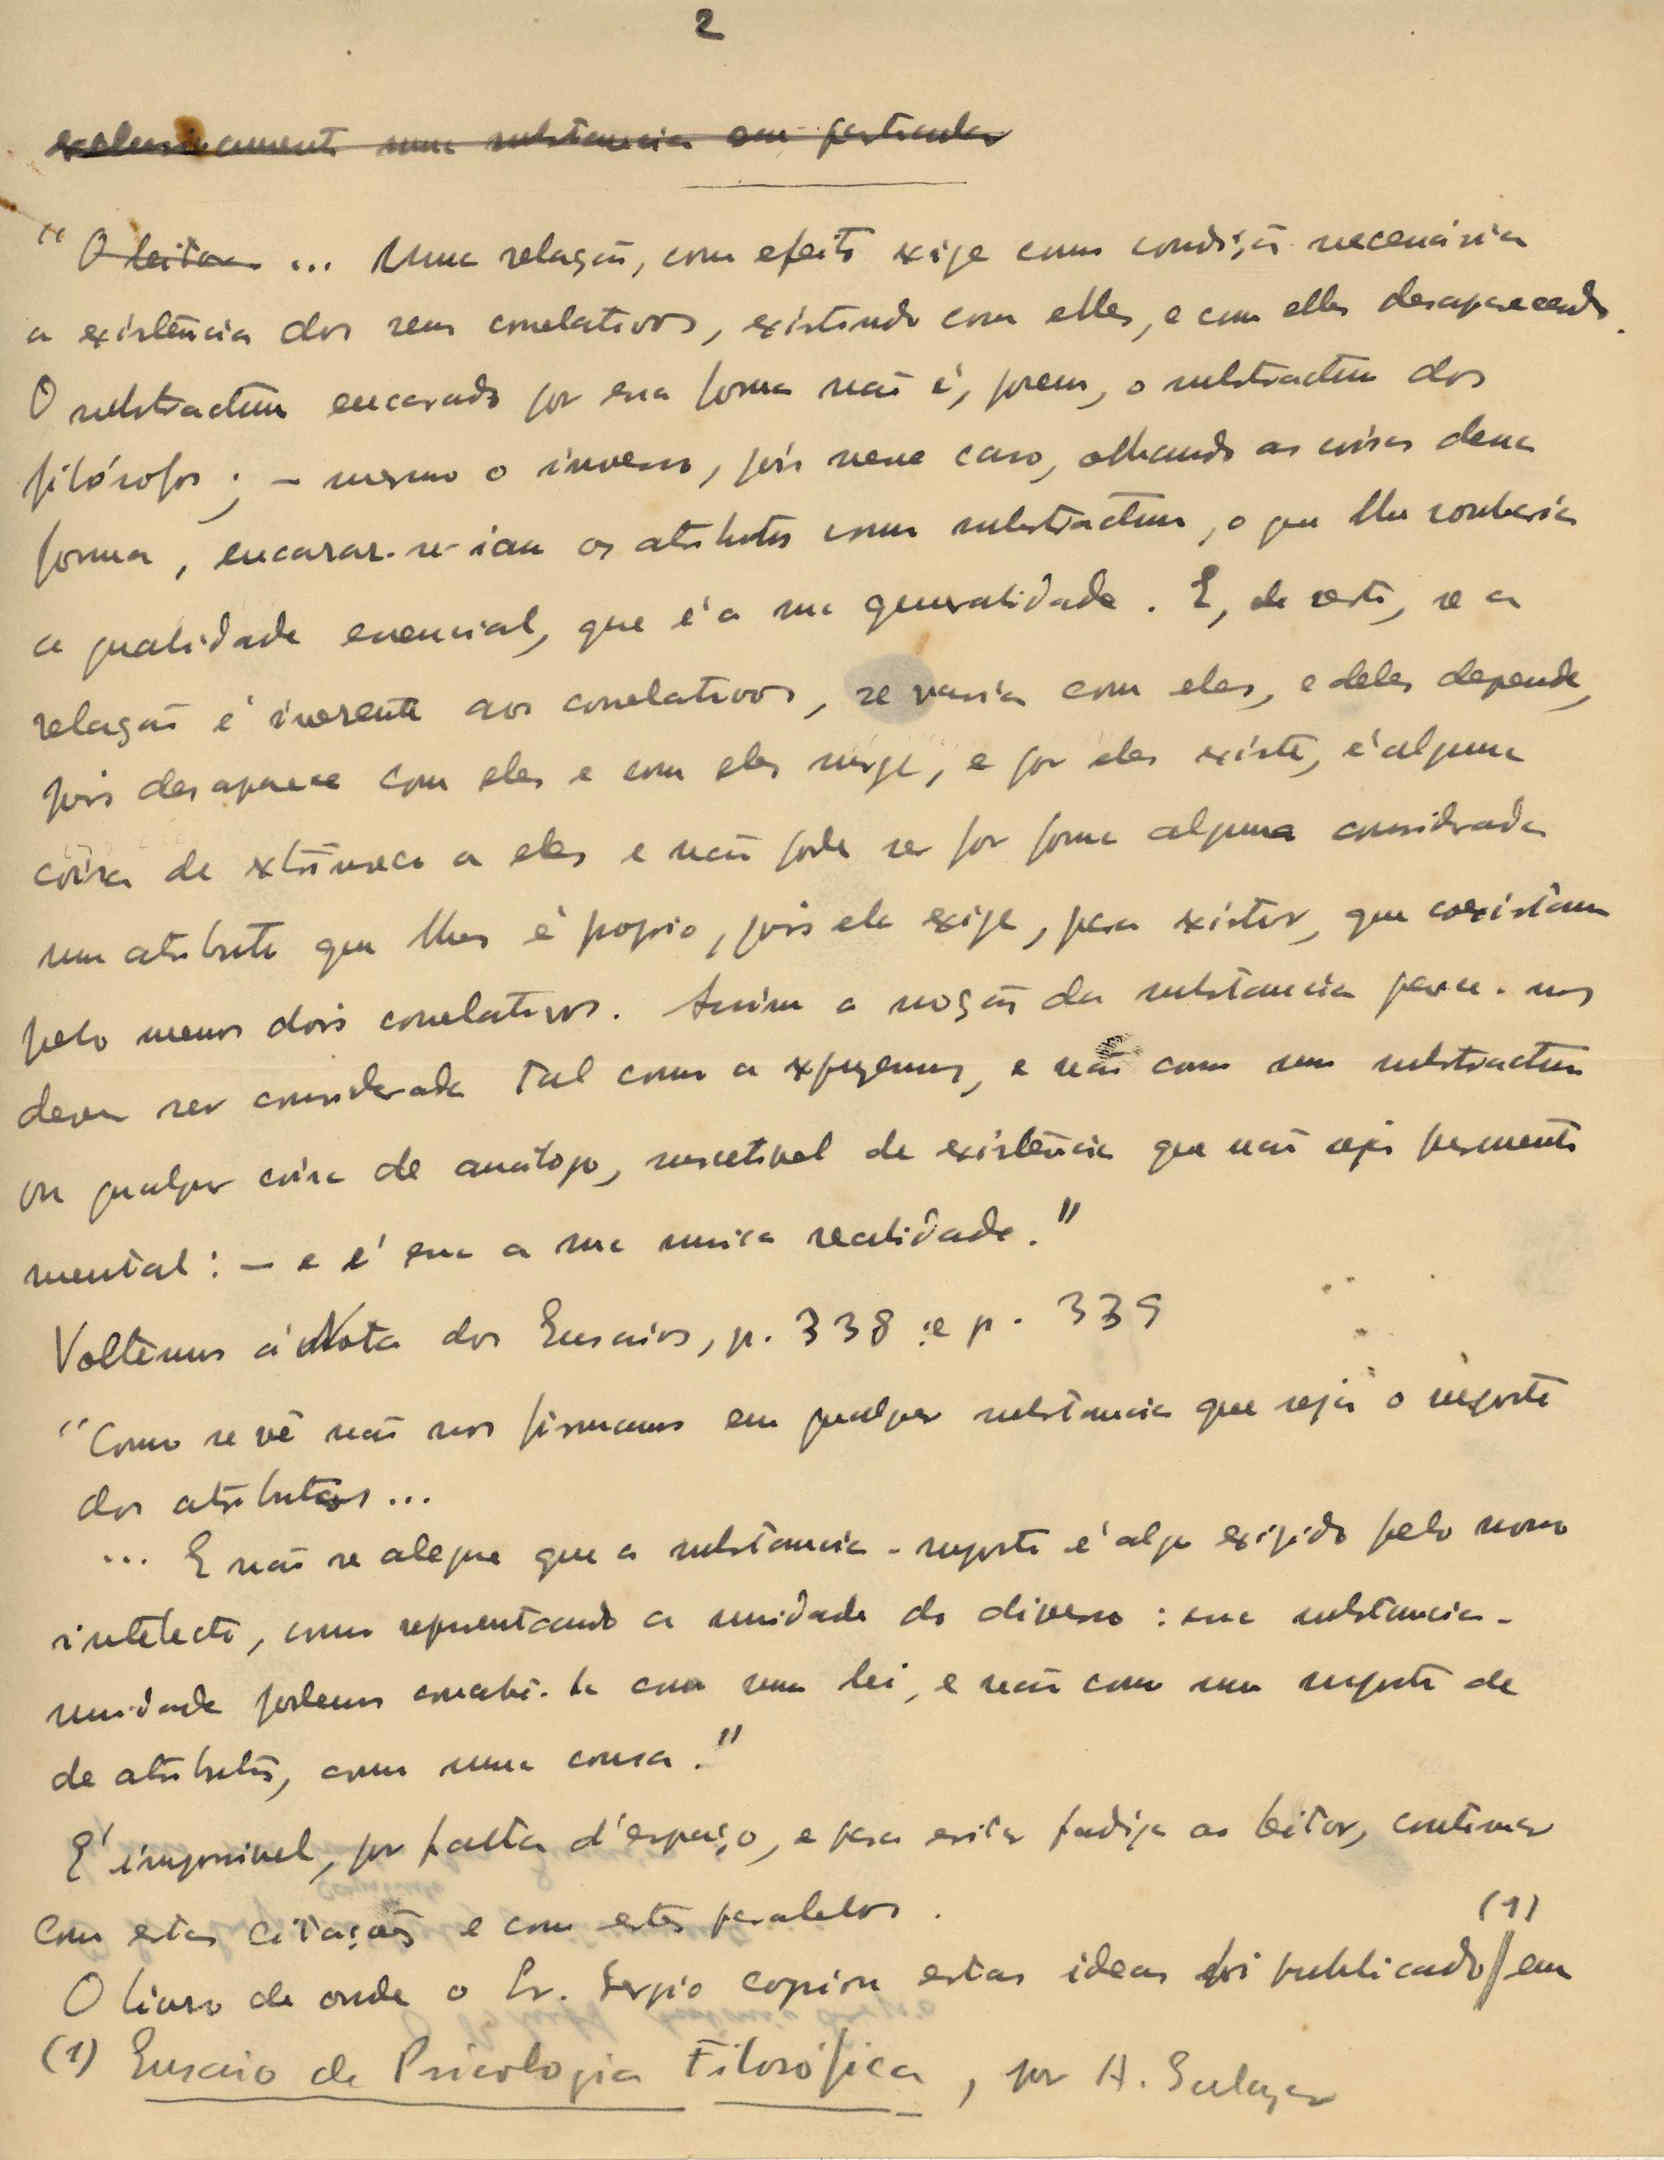 2
exclusivamente numa substancia em particular
"O leitor ... Uma relação, com efeito exige como condição necessária
a existência dos seus correlativos, existindo com elles, e com elles desaparecendo.
O substractum encarado por essa forma não é, porem, o substractum dos
filósofos ; – mesmo o inverso, pois nesse caso, olhando as coisas dessa
forma, encarar-se-iam os atributos como substractum, o que lhe roubaria
a qualidade essencial, que é a sua generalidade. E, de resto, se a
relação é inerente aos correlativos, se varia com eles, e deles depende,
pois desaparece com eles e com eles surge, e por eles existe, é alguma
coisa de extrinseco a eles e não pode ser por forma alguma considerada
um atributo que lhes é proprio, pois ela exige, para existir, que coexistam
pelo menos dois correlativos. Assim a noção da substancia parece-nos
dever ser considerada tal como a expuzemos, e não como um substractum
ou qualquer coisa de analogo, suscetivel de existência que não seja puramente
mental : – e é essa a sua unica realidade."
Voltemos á Nota dos Ensaios, p. 338 e p. 339
"Como se vê não nos firmamos em qualquer substancia que seja o suporte
dos atributos ...
... E não se alegue que a substancia-suporte é algo exigido pelo nosso
intelecto, como representando a unidade do diverso : essa substancia-
unidade podemos concebê-la como uma lei, e não como um suporte de
de atributos, como uma cousa."
É impossivel, por falta d'espaço, e para evitar fadiga ao leitor, continuar
com estas citações e com estes paralelos.
O livro de onde o Sr. Sergio copiou estas ideas foi publicado (1) em
(1) Ensaio de Psicologia Filosófica, por A. Salazar